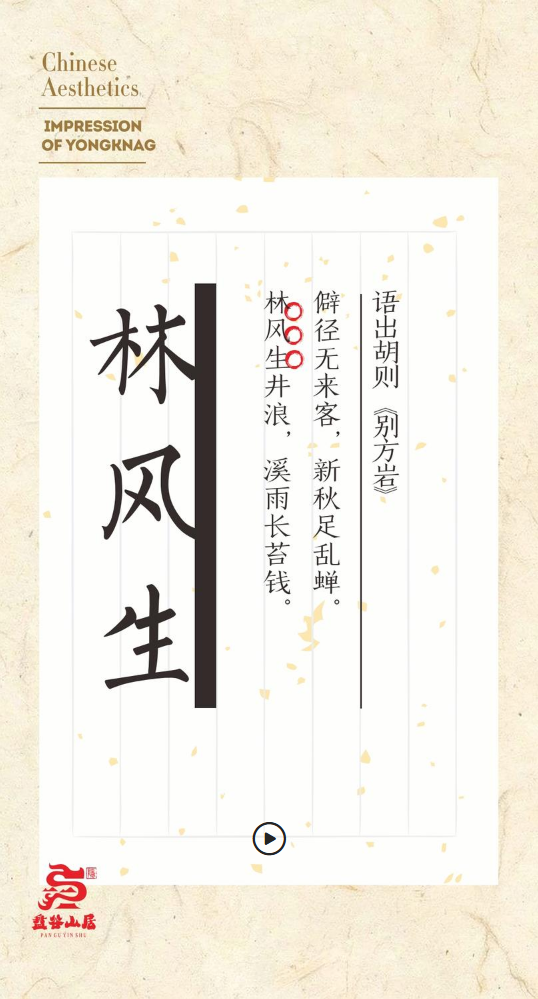 Chinese
Aesthetics
IMPRESSION
OF YONGKNAG
语出胡则 《别方岩》
僻径无来客，新秋足乱蝉。
林风生井浪，溪雨长苔钱。
林风生
盘谷山居
PAN GU YIN SHU